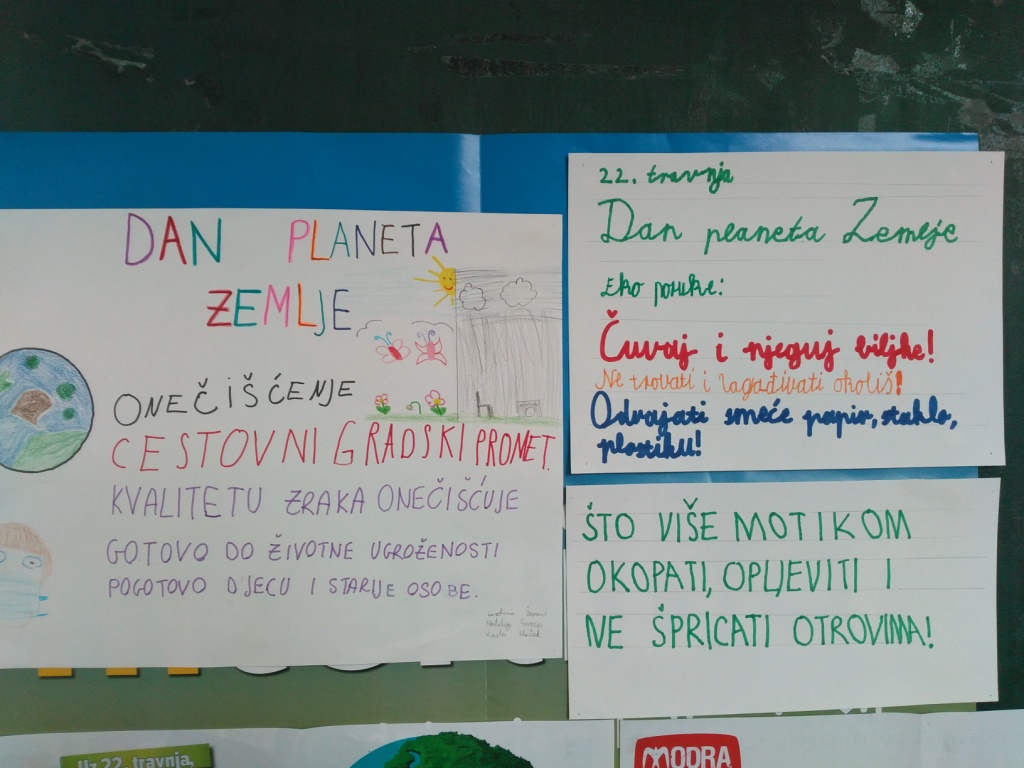 DAN PLANETA
ZEMLJE
ONEČIŠĆENJE
CESTOVNI GRADSKI PROMET.
KVALITETU ZRAKA ONEČIŠĆUJE
GOTOVO DO ŽIVOTNE UGROŽENOSTI
POGOTOVO DJECU I STARIJE OSOBE.
22. travnja
Dan planeta Zemlje
Eko poruke:
Čuvaj i njeguj biljke!
Ne trovati i zagađivati okoliš!
Odvajati smeće papir, staklo,
plastiku!
ŠTO VIŠE MOTIKOM
OKOPATI, OPLJEVITI I
NE ŠPRICATI OTROVIMA!
Uz 22. travnja,
MODRA